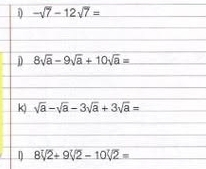 i) -√7 - 12√7 =
j) 8√a - 9√a + 10√a =
k) √a - √a - 3√a + 3√a =
l) 8∛2 + 9∛2 - 10∛2 =